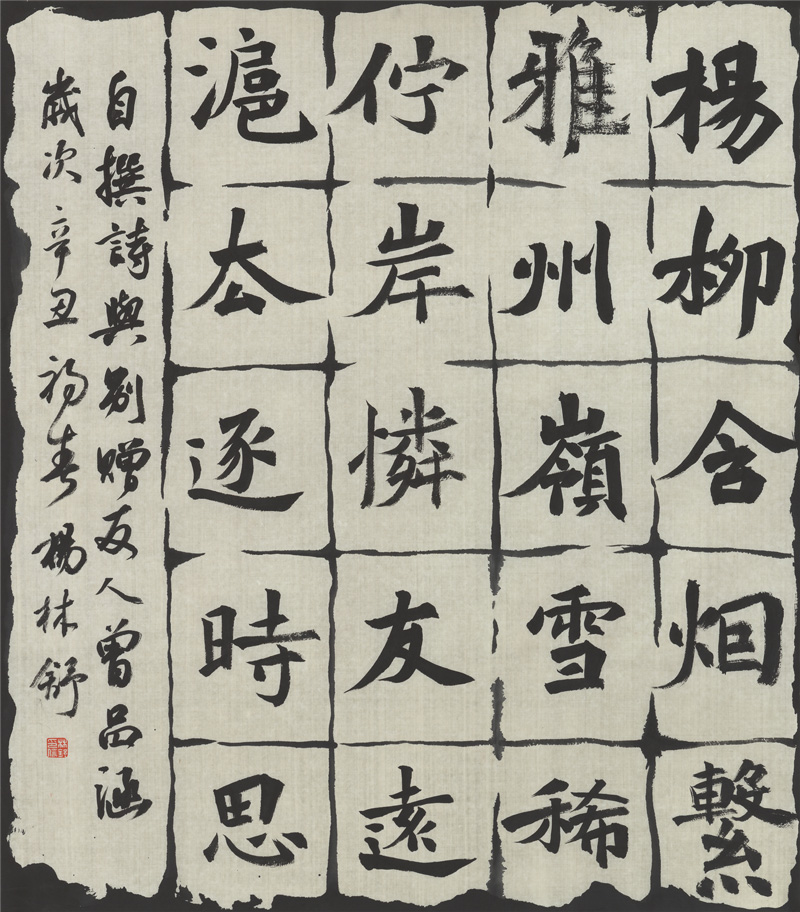 楊柳含烟繫
雅州嶺雪稀
佇岸憐友遠
滬厺逐時思
自撰詩與別贈友人曾品涵
歲次辛丑初春楊林舒